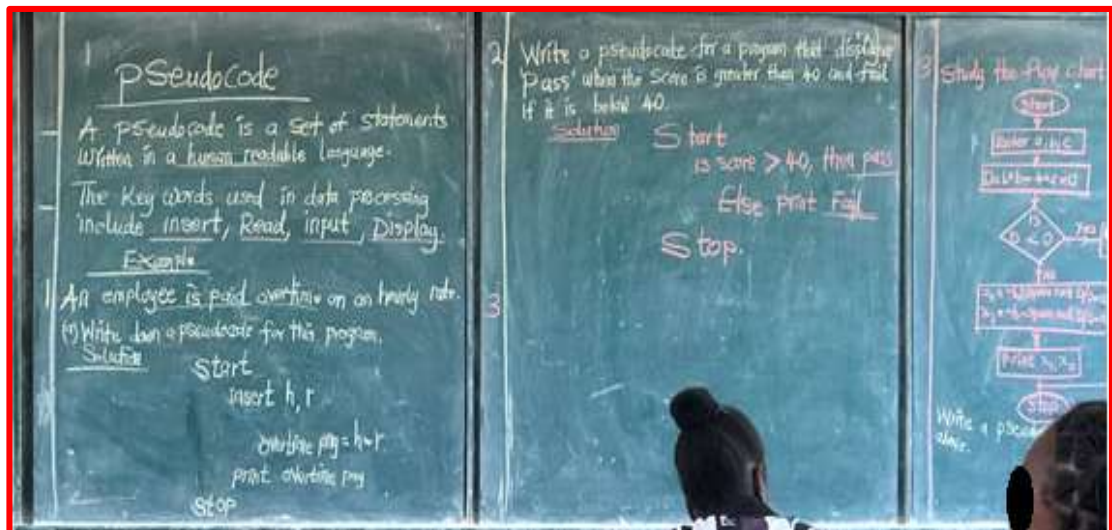 1
Pseudocode
A pseudocode is a set of statements
Written in a human readable language.
The key words used in data processing
include insert, Read, input, Display
Example
1 An employee is paid overtime on an hourly rate.
Write down a pseudocode for this program.
Solution
Start
insert h, r
overtime pay = h*r
print overtime pay
Stop
2 Write a pseudocode for a program that displays
'pass' when the score is greater than 40 and fail
if it is below 40.
Solution
Start
is score > 40, then pass
Else print Fail
Stop.
3
3 Study the flow chart
Start
Enter a, b, c
Is
D < 0
Yes
No
Print x₁, x₂
Stop
Write a
above.